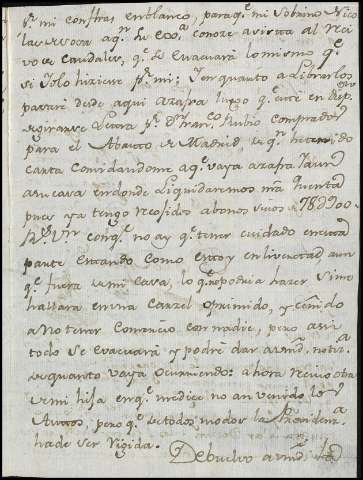 pr. mi con firas en blanco, para qe. mi Sobrino Nico
las resosa a qn. de eod.a conose asista al Reci
vo de Caudales, qe. se evacuará lo mismo qe.
si Yolo hiziese pr. mi: Y en quanto a Librarlos
pasaré desde aqui a Zafra luego qe. esté en disp.on
segiranse Letra pr. Dn. Fran.co Rubio Comprador
para el Abasto de Madrid, de qn. he tenido
carta Comvidandome a qe. vaya a Zafra Y aun
a su casa en donde Liquidaremos nra Quenta
pues ya tengo Recividos abonos vivos de 789900.
Rs. Vn. con qe. no ay qe. tener cuidado en esta
parte Estando Como Estoy en livertad aun
qe. fuera de mi Casa, lo qe. no podria hazer si me
hallara en una Carzel oprimido, y ceñido
a no tener Comercio con nadie, pero asi
todo se evacuará y podré dar a vmd. notiz.a
de quanto vaya ocurriendo: ahora Recivo otra
de mi hija en qe. me dice no an venido los
Autos, pero qe. de todos modos la Providen.a
ha de ser Rigida.
Debuelvo a vmd. la